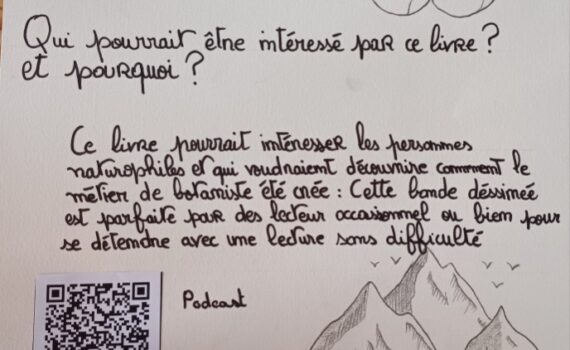 Qui pourrait être intéressé par ce livre ?
et pourquoi ?
Ce livre pourrait intéresser les personnes
naturophiles et qui voudraient découvrire comment le
métier de botaniste été crée : Cette bande déssineé
est parfaite par des lecteur occasionnel ou bien pour
se détendre avec une lecture sans difficulté
Podcast